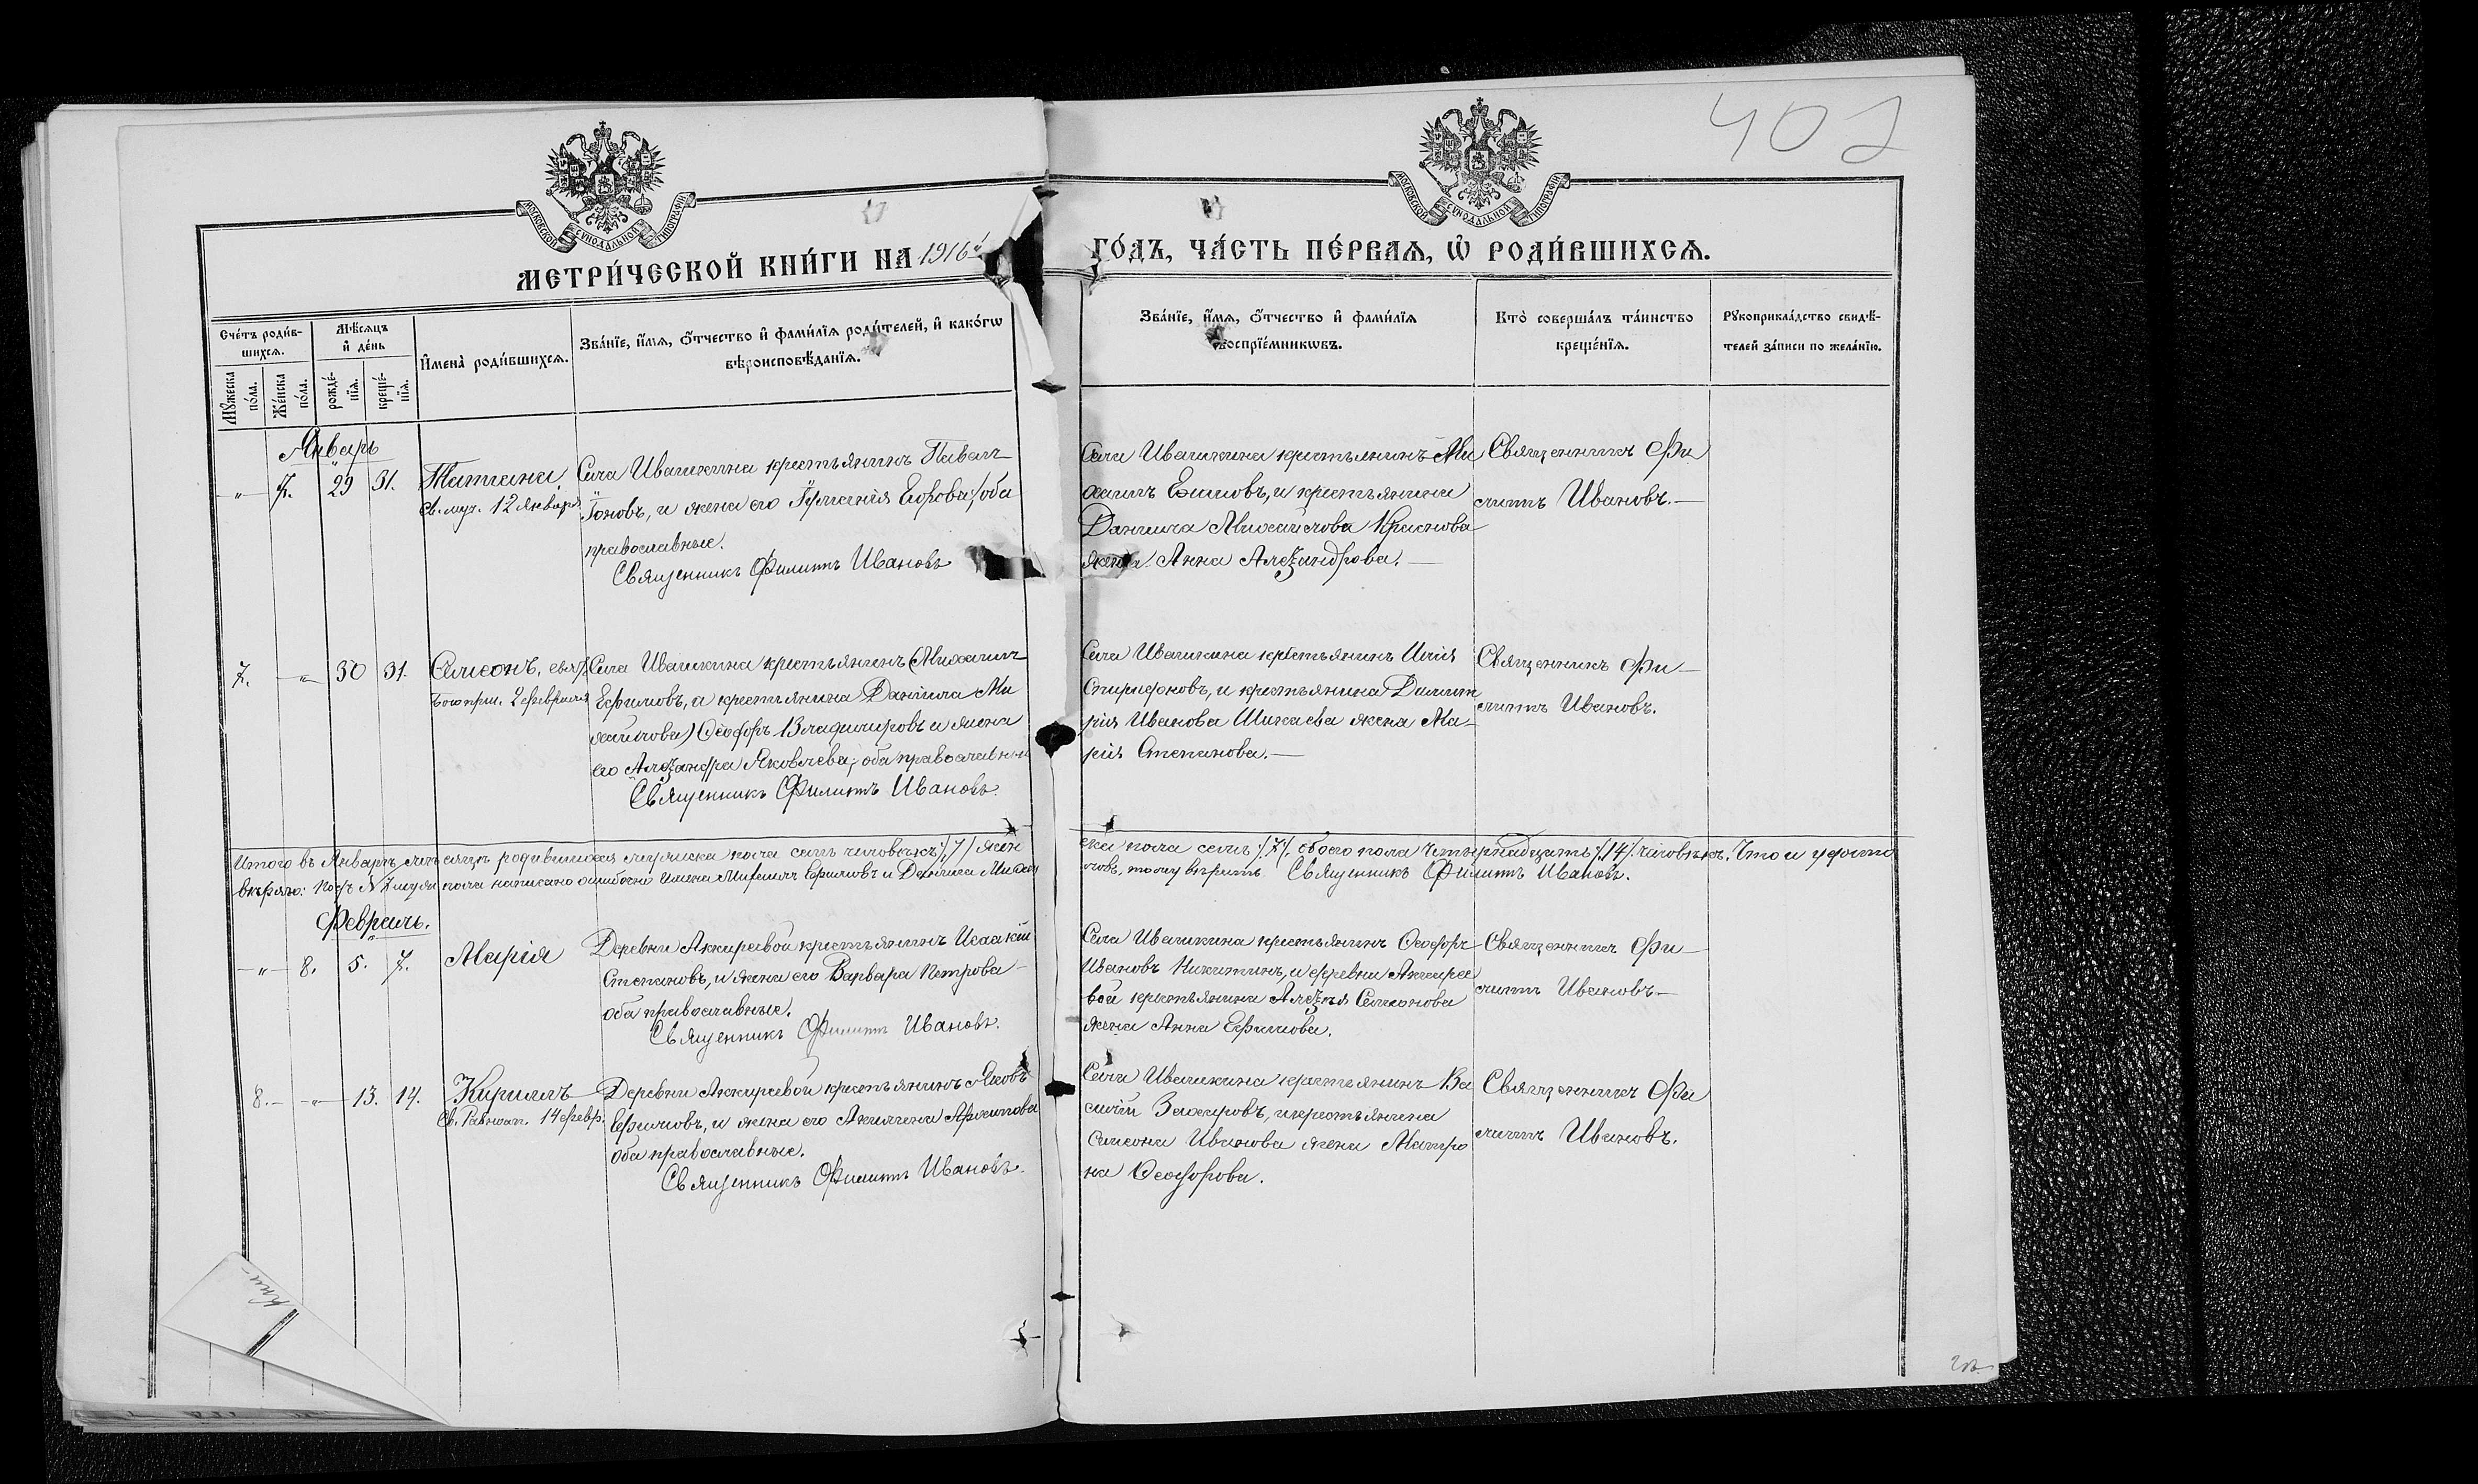 402
МОСКОВСКОЙ СѴНОДАЛЬНОЙ ТИПОГРАФІИ
МОСКОВСКОЙ СѴНОДАЛЬНОЙ ТИПОГРАФІИ
МЕТРИ́ЧЕСКОЙ КНИ́ГИ НА 1916й ГО́ДЪ, ЧА́СТЬ ПЕ́РВАѦ, Ѡ҆ РОДИ́ВШИХСѦ.
Сче́тъ роди́в-
шихсѧ.
Мꙋ́жеска
по́ла.
Же́нска
по́ла.
Мѣ́сѧцъ
и҆ де́нь
рожде́-
нїѧ.
креще́-
нїѧ.
И҆мена̀ роди́вшихсѧ.
Зва́нїе, и҆́мѧ, ѻ҆́тчество и҆ фами́лїѧ роди́телей, и҆ како́гѡ
вѣроисповѣ́данїѧ.
Зва́нїе, и҆́мѧ, ѻ҆́тчество и҆ фами́лїѧ
воспрїе́мникѡвъ.
Кто̀ соверша́лъ та́инство
креще́нїѧ.
Рꙋкоприкла́дство свидѣ́-
телей за́писи по жела́нїю.
Январь
" 7. 29 31.
Татiана,
св. муч. 12 января
Села Ивашкина крестьянинъ Павелъ
Іоновъ, и жена его Іуліанія Егорова, оба
православные.
Священникъ Филиппъ Ивановъ
Села Ивашкина крестьянинъ Ми
хаилъ Ефимовъ, и крестьянина
Даніила Михайлова Краснова
жена Анна Алеѯандрова.
Священникъ Фи
липпъ Ивановъ.
7. " 30 31.
Симеонъ, свят.
Богопри. 2 февраля
Села Ивашкина крестьянинъ (Михаилъ
Ефимовъ, а крестьянина Даніила Ми
хайлова) Ѳеодоръ Владиміровъ и жена
его Алеѯандра Яковлева, оба православные
Священникъ Филиппъ Ивановъ.
Села Ивашкина крестьянинъ Илія
Спиридоновъ, и крестьянина Димит
рія Иванова Шикаева жена Ма-
рія Степанова.
Священникъ Фи-
липпъ Ивановъ.
Итого въ Январѣ мѣсяцѣ родившихся мужеска пола семь человѣкъ /7/ жен
ска пола семь /7/, обоего пола четырнадцать /14/ человѣкъ. Что и удосто
вѣряю: подъ № 7 муж. пола написано ошибочно имена Михаилъ Ефимовъ и Даніила Михай
ловъ, тому вѣрить Священникъ Филиппъ Ивановъ.
Февраль.
" 8. 5. 7.
Марія
Деревни Аккиревой крестьянинъ Исаакій
Степановъ, и жена его Варвара Петрова
оба православные.
Священникъ Филиппъ Ивановъ.
Села Ивашкина крестьянинъ Ѳеодоръ
Ивановъ Никитинъ, и деревни Аккире
вой крестьянина Алеѯѣя Симеонова
жена Анна Ефимова.
Священникъ Фи-
липпъ Ивановъ
8. " 13. 14.
Кириллъ
Св. Равноап. 14 февр.
Деревни Аккиревой крестьянинъ Яковъ
Ефимовъ, и жена его Акилина Архипова
оба православные.
Священникъ Филиппъ Ивановъ.
Села Ивашкина крестьянинъ Ва
силій Захаровъ, и крестьянина
Симеона Иванова жена Матро
на Ѳеодорова.
Священникъ Фи
липпъ Ивановъ.